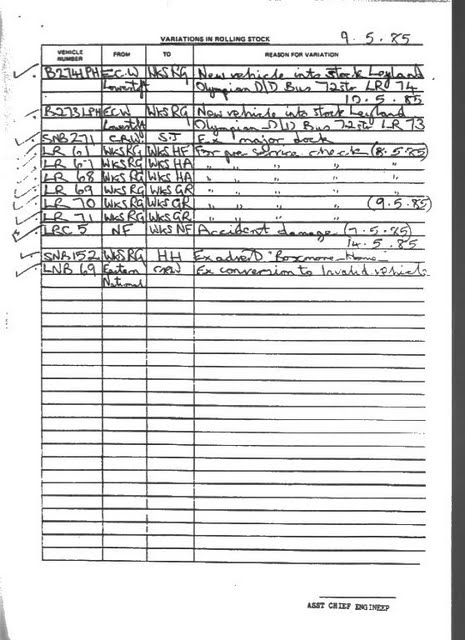 9.5.85
VARIATIONS IN ROLLING STOCK
VEHICLE NUMBER FROM TO REASON FOR VARIATION
B274LPH E.C.W WKSRG New vehicle into stock Leyland
Lowestoft Olympian D/D Bus 72 str LR 74
10.5.85
B273LPH ECW WKSRG New vehicle into stock Leyland
Lowestoft Olympian D/D Bus 72 str LR 73
SNB271 CRW SJ Ex major dock
LR 61 WKSRG WKS HF For pre service check (8.5.85)
LR 67 WKSRG WKS HA " " " "
LR 68 WKSRG WKS HA " " "
LR 69 WKSRG WKS GR " " "
LR 70 WKSRG WKS GR " " " (9.5.85)
LR 71 WKSRG WKS GR " " "
LRC 5 NF WKS NF Accident damage (7.5.85)
14.5.85
SNB152 WKSRG HH Ex advert "Boxmore Home"
LNB 69 Eastern CRW Ex conversion to Invalid vehicle
National
ASST CHIEF ENGINEER